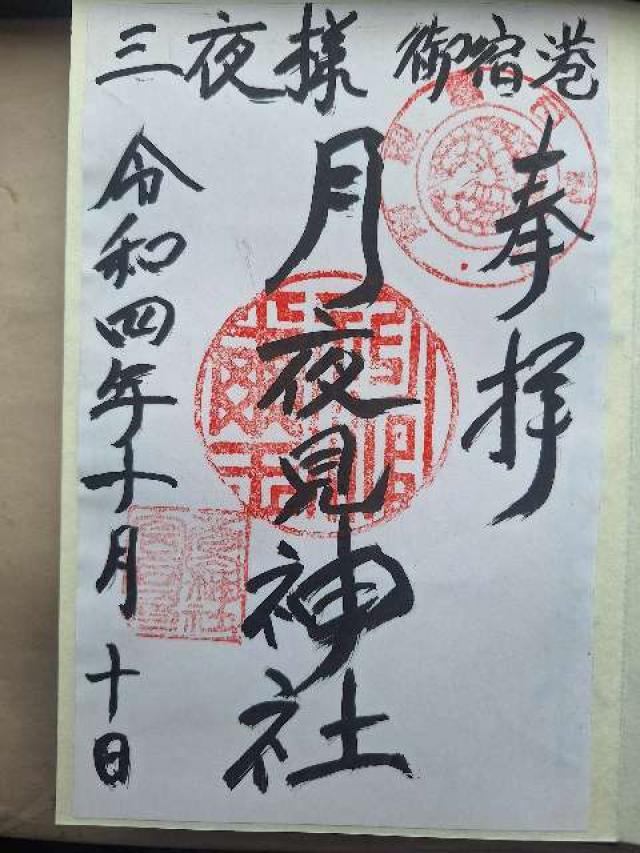 三夜様 御宿港
奉拝
月夜見神社
令和四年十月十日